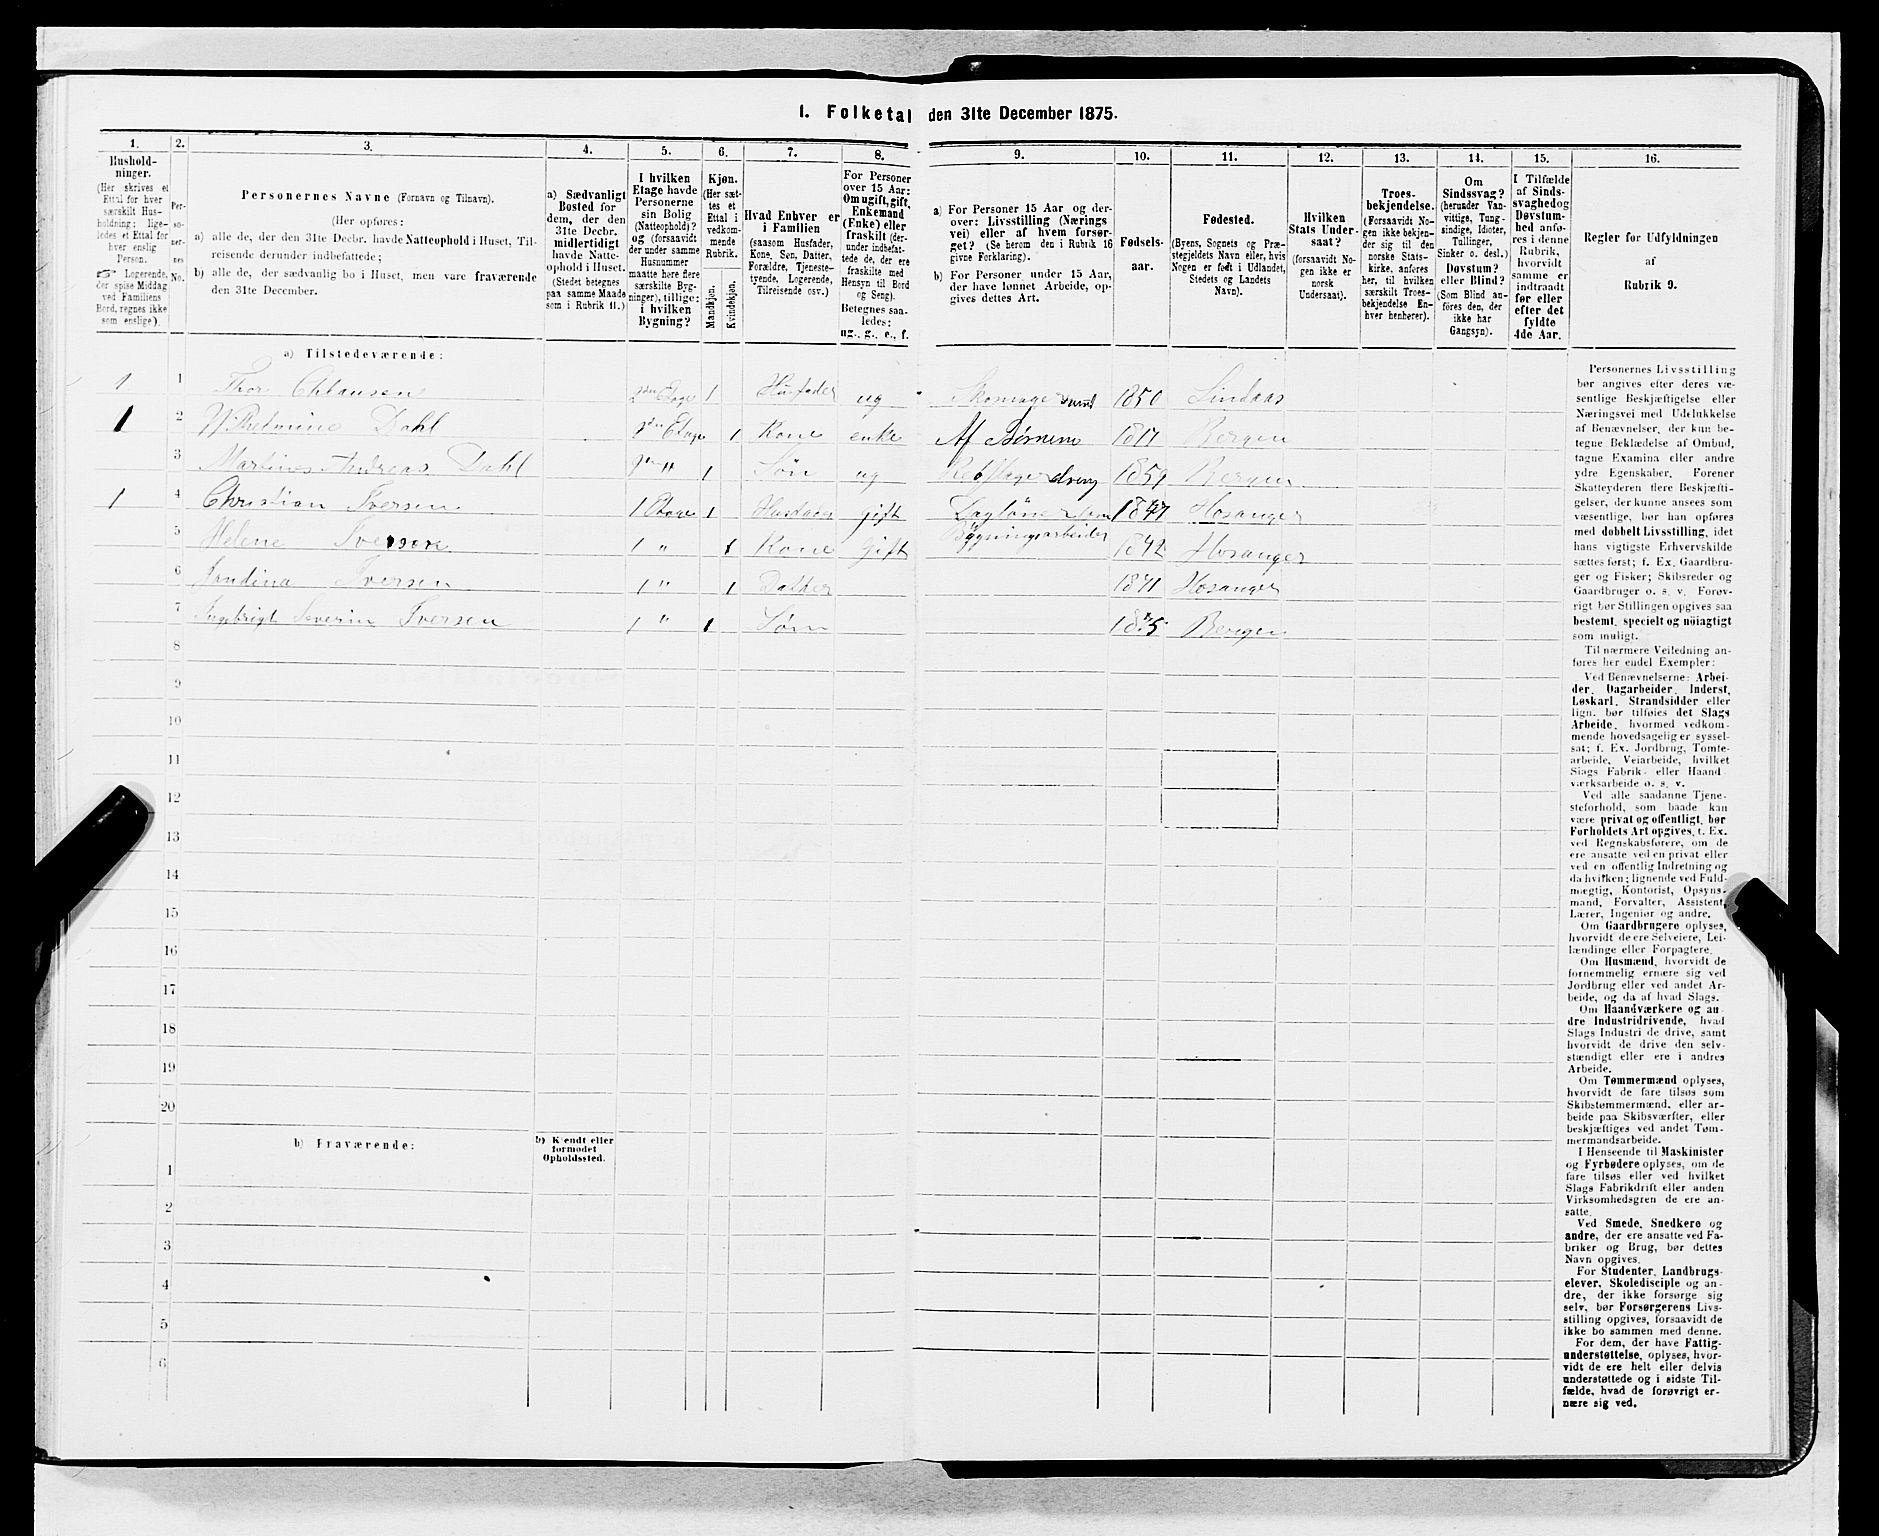 1. Folketal den 31te December 1875.
1. 2. 3. 4. 5. 6. 7. 8. 9. 10. 11. 12. 13. 14. 15. 16.
Hushold-
ninger.
(Her skrives et
Ettal for hver
særskilt Hus-
holdning; lige-
ledes et Ettal for
hver enslig
Person.
☞ Logerende,
der spise Middag
ved Familiens
Bord, regnes ikke
som enslige).
Per-
so-
ner-
nes
No.
Personernes Navne (Fornavn og Tilnavn).
(Her opføres:
a) alle de, der den 31te Decbr. havde Natteophold i Huset, Til-
reisende derunder indbefattede;
b) alle de, der sædvanlig bo i Huset, men vare fraværende
den 31te December.
a) Sædvanligt
Bosted for
dem, der den
31te Decbr.
midlertidigt
havde Natte-
ophold i Huset.
(Stedet betegnes
paa samme Maade
som i Rubrik 11.)
I hvilken
Etage havde
Personerne
sin Bolig
(Natteophold)?
og (forsaavidt
der under samme
Husnummer
maatte høre flere
særskilte Byg-
ninger), tillige:
i hvilken
Bygning?
Kjøn.
(Her sæt-
tes et
Ettal i
vedkom-
mende
Rubrik.
Mandkjøn.
Kvindekjøn.
Hvad Enhver er
i Familien
(saasom Husfader,
Kone, Søn, Datter,
Forældre, Tjeneste-
tyende, Logerende,
Tilreisende osv.)
For Personer
over 15 Aar:
Om ugift, gift,
Enkemand
(Enke) eller
fraskilt (der-
under indbefat-
tede de, der ere
fraskilte med
Hensyn til Bord
og Seng).
Betegnes saa-
ledes:
ug., g., e., f.
a) For Personer 15 Aar og der-
over: Livsstilling (Nærings
vei) eller af hvem forsør-
get? (Se herom den i Rubrik 16
givne Forklaring).
b) For Personer under 15 Aar,
der have lønnet Arbeide, op-
gives dettes Art.
Fødsels-
aar.
Fødested.
(Byens, Sognets og Præ-
stegjeldets Navn eller, hvis
Nogen er født i Udlandet,
Stedets og Landets
Navn).
Hvilken
Stats Under-
saat?
(forsaavidt No-
gen ikke er
norsk
Undersaat).
Troes-
bekjendelse.
(Forsaavidt No-
gen ikke bekjen-
der sig til den
norske Stats-
kirke, anføres
her, til hvilken
særskilt Troes-
bekjendelse En-
hver henhører).
Om
Sindssvag?
(herunder Van-
vittige, Tung-
sindige, Idioter,
Tullinger,
Sinker o. desl.)
Døvstum?
eller Blind?
(Som Blind an-
føres den, der
ikke har
Gangsyn).
I Tilfælde
af Sinds-
svaghed og
Døvstum-
hed anfø-
res i denne
Rubrik,
hvorvidt
samme er
indtraadt
før eller
efter det
fyldte
4de Aar.
Regler for Udfyldningen
af
Rubrik 9.
a) Tilstedeværende:
1 1 Thor Chlausen 2den Etage 1 Husfader ug Skomagersvend 1850 Lindaas
1 2 Wilhelmine Dahl 2den Etage 1 Kone enke Af Børnene Bergen
3 Martines Andreas Dahl 2den " 1 Søn ug Rebslagerdreng 1859 Bergen
1 4 Christian Iversen 1 Etage 1 Husfader gift Dagløner som Hosanger
Bygningsarbeider
5 Helene Iversen 1 " 1 Kone Gift 1842 Hosanger
6 Iversen 1 " 1 Datter 1871 Hosanger
7 Ingebrigt Severin Iversen 1 " 1 Søn 1875 Bergen
8
9
10
11
12
13
14
15
16
17
18
19
20
b) Fraværende:
b) Kjendt eller
formodet
Opholdssted.
1
2
3
4
5
6
Personernes Livsstilling
bør angives efter deres væ-
sentlige Beskjæftigelse eller
Næringsvei med Udelukkelse
af Benævnelser, der kun be-
tegne Beklædelse af Ombud,
tagne Examina eller andre
ydre Egenskaber. Forener
Skatteyderen flere Beskjæfti-
gelser, der kunne ansees som
væsentlige, bør han opføres
med dobbelt Livsstilling, idet
hans vigtigste Erhvervskilde
sættes først; f. Ex. Gaardbru-
ger og Fisker; Skibsreder og
Gaardbruger o. s. v. Forøv-
rigt bør Stillingen opgives saa
bestemt, specielt og nöiagtigt
som muligt.
Til nærmere Veiledning an-
føres her endel Exempler:
Ved Benævnelserne: Arbei-
der, Dagarbeider, Inderst,
Løskarl, Strandsidder eller
lign. bør tilføies det Slags
Arbeide, hvormed vedkom-
mende hovedsagelig er syssel-
sat; f. Ex. Jordbrug, Tomte-
arbeide, Veiarbeide, hvilket
Slags Fabrik- eller Haand-
værksarbeide o. s. v.
Ved alle saadanne Tjene-
steforhold, som baade kan
være privat og offentligt, bør
Forholdets Art opgives, t. Ex.
ved Regnskabsførere, om de
ere ansatte ved en privat eller
ved en offentlig Indretning og
da hvilken; lignende ved Fuld-
mægtig, Kontorist, Opsyns-
mand, Forvalter, Assistent,
Lærer, Ingeniør og andre.
Om Gaardbrugere oplyses,
hvorvidt de ere Selveiere, Lei-
lændinge eller Forpagtere.
Om Husmænd, hvorvidt de
fornemmelig ernære sig ved
Jordbrug eller ved andet Ar-
beide, og da af hvad Slags.
Om Haandværkere og an-
dre Industridrivende, hvad
Slags Industri de drive, samt
hvorvidt de drive den selv-
stændigt eller ere i andres
Arbeide.
Om Tømmermænd oplyses,
hvorvidt de fare tilsøs som
Skibstømmermænd, eller ar-
beide paa Skibsværfter, eller
beskjæftiges ved andet Tøm-
mermandsarbeide.
I Henseende til Maskinister
og Fyrbødere oplyses, om de
fare tilsøs eller ved hvilket
Slags Fabrikdrift eller anden
Virksomhedsgren de ere an-
satte.
Ved Smede, Snedkere og
andre, der ere ansatte ved Fa-
briker og Brug, bør dettes
Navn opgives.
For Studenter, Landbrugs-
elever, Skoledisciple og an-
dre, der ikke forsørge sig
selv, bør Forsørgerens Livs-
stilling opgives, forsaavidt de
ikke bo sammen med denne.
For dem, der have Fattig-
understøttelse, oplyses, hvor-
vidt de ere helt eller delvis
understøttede og i sidste Til-
fælde, hvad de forøvrigt er-
nære sig ved.